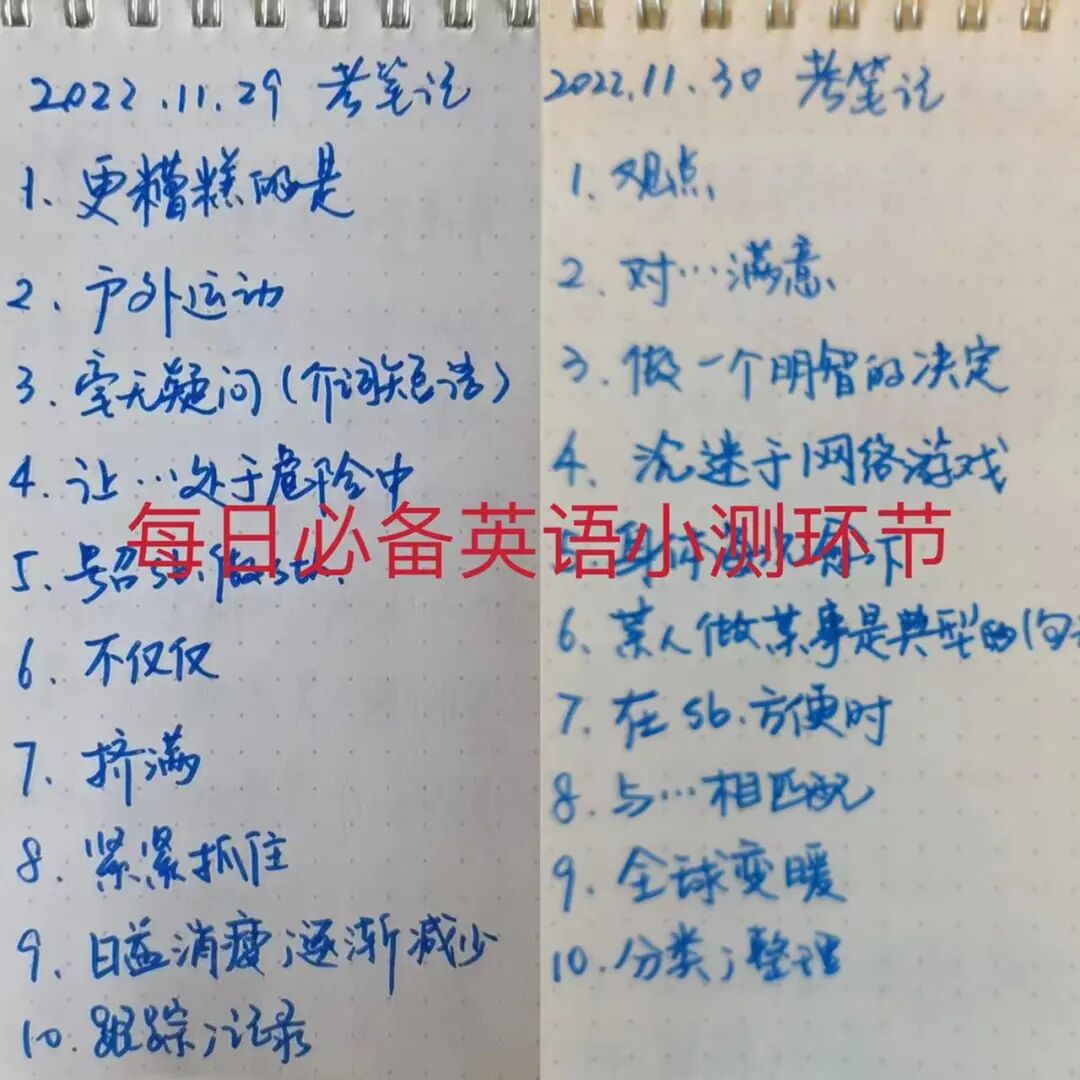 2022.11.29 考笔记
1. 更糟糕的是
2. 户外运动
3. 毫无疑问(介词短语)
4. 让…处于危险中
5. 号召 做
6. 不仅仅
7. 挤满
8. 紧紧抓住
9. 日益消瘦;逐渐减少
10. 跟踪;记录
2022.11.30 考笔记
1. 观点
2. 对…满意
3. 做一个明智的决定
4. 沉迷于网络游戏
5. 身体
6. 某人做某事是典型的(句
7. 在sb.方便时
8. 与…相匹配
9. 全球变暖
10. 分类;整理
每日必备英语小测环节